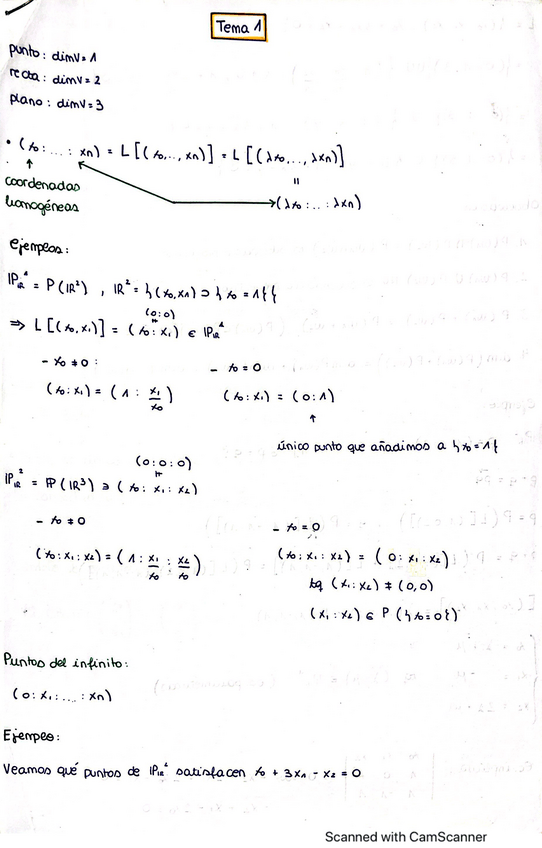 Tema 1
punto: dimV=1
recta: dimV=2
plano: dimV=3
• (x₀:...:xn) = L[(x₀,..,xn)] = L[(λx₀,..,λxn)]
coordenadas
homogéneas
=
(λx₀:..:λxn)
Ejemplos:
IP¹_IR = P(IR²), IR² = {(x₀,x₁) ⊃ {x₀=1}}
(0:0)
⇒ L[(x₀,x₁)] = (x₀:x₁) ∈ IP¹_IR
- x₀≠0: - x₀=0
(x₀:x₁) = (1: x₁/x₀) (x₀:x₁) = (0:1)
↑
único punto que añadimos a {x₀=1}
(0:0:0)
IP²_IR = IP(IR³) ∋ (x₀:x₁:x₂)
- x₀≠0 - x₀=0
(x₀:x₁:x₂) = (1: x₁/x₀ : x₂/x₀) (x₀:x₁:x₂) = (0:x₁:x₂)
tq (x₁:x₂) ≠ (0,0)
(x₁:x₂) ∈ P({x₀=0})
Puntos del infinito:
(0:x₁:...:xn)
Ejemplo:
Veamos qué puntos de IP²_IR satisfacen x₀ + 3x₁ - x₂ = 0
Scanned with CamScanner